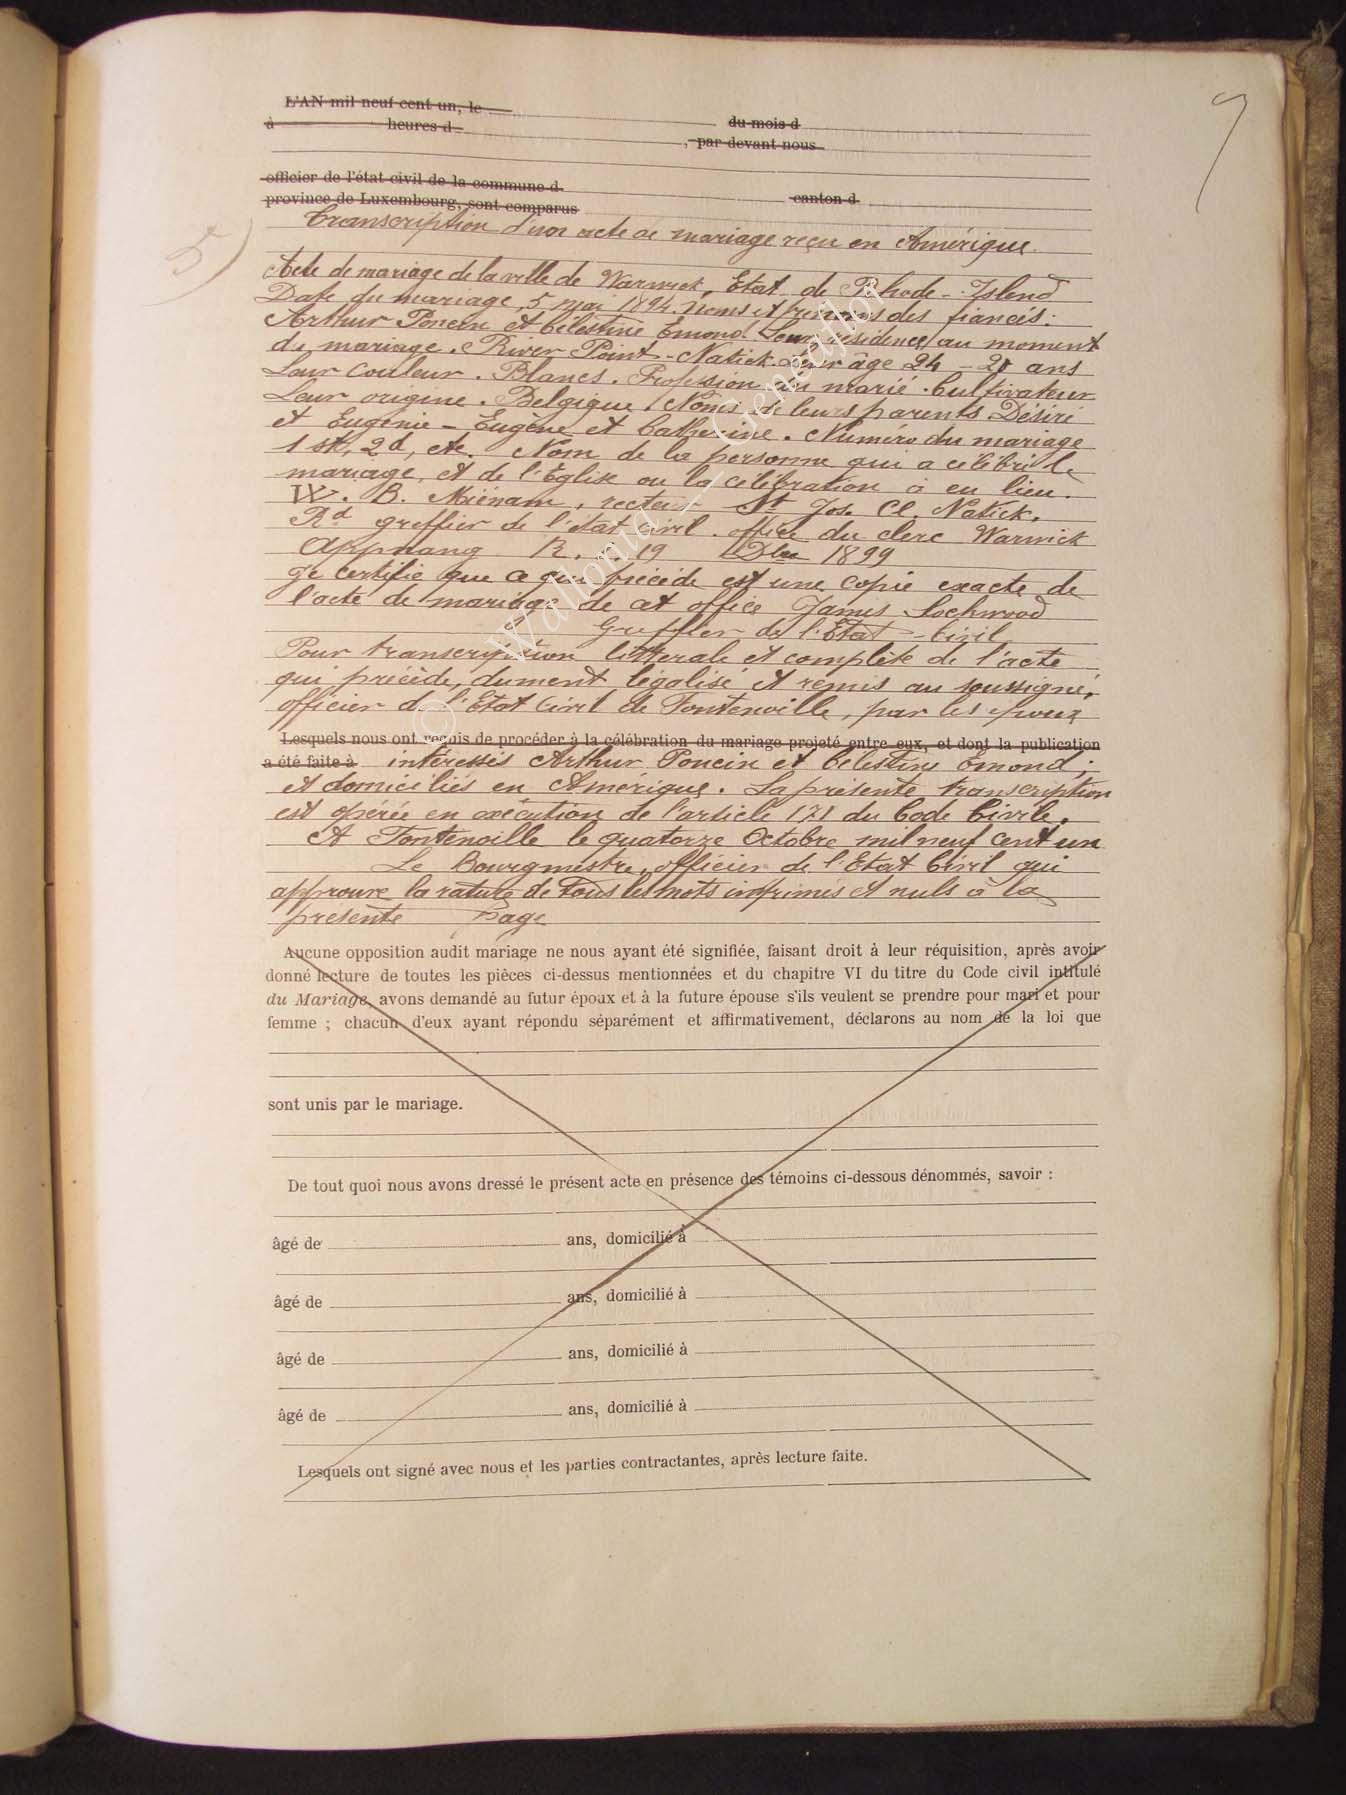 7
L'AN mil neuf cent un, le du mois d
à heures d , par devant nous
officier de l'état civil de la commune d canton d
province de Luxembourg, sont comparus
Transcription d'un acte de mariage reçu en Amérique.
5)
Acte de mariage de la ville de Warwick, Etat de Rhode-Islend
Date du mariage, 5 mai 1894. Noms et prénoms des fiancés:
Arthur Poncin et Célestine Emond. Leur résidence au moment
du mariage. River Point-Natick. Leur âge 24 - 20 ans
Leur couleur. Blancs. Profession du marié. Cultivateur
Leur origine. Belgique. Noms de leurs parents Désiré
et Eugénie - Eugène et Catherine. Numéro du mariage
1 st, 2d, etc. Nom de la personne qui a célébré le
mariage, et de l'Eglise ou la célébration a eu lieu.
W. B. Miénam, recteur St Jos. Cl. Natick.
Rd greffier de l'état civil. office du clerc Warwick
Appnang R. 19 Dbre 1899
Je certifie que ce qui précède est une copie exacte de
l'acte de mariage de cet office James Lockwood
Greffier de l'Etat-Civil
Pour transcription litterale et complète de l'acte
qui précède, dument légalisé et remis au soussigné,
officier de l'Etat Civil de Fontenoille, par les époux
Lesquels nous ont requis de procéder à la célébration du mariage projeté entre eux, et dont la publication
a été faite à intéressés Arthur Poncin et Célestine Emond,
et domiciliés en Amérique. La présente transcription
est opérée en exécution de l'article 171 du Code Civile.
A Fontenoille le quatorze Octobre mil neuf cent un
Le Bourgmestre, officier de l'Etat Civil qui
approuve la rature de tous les mots imprimés et nuls à la
présente page
Aucune opposition audit mariage ne nous ayant été signifiée, faisant droit à leur réquisition, après avoir
donné lecture de toutes les pièces ci-dessus mentionnées et du chapitre VI du titre du Code civil intitulé
du Mariage, avons demandé au futur époux et à la future épouse s'ils veulent se prendre pour mari et pour
femme ; chacun d'eux ayant répondu séparément et affirmativement, déclarons au nom de la loi que
sont unis par le mariage.
De tout quoi nous avons dressé le présent acte en présence des témoins ci-dessous dénommés, savoir :
âgé de ans, domicilié à
âgé de ans, domicilié à
âgé de ans, domicilié à
âgé de ans, domicilié à
Lesquels ont signé avec nous et les parties contractantes, après lecture faite.
© Wallonia - Geneaflor